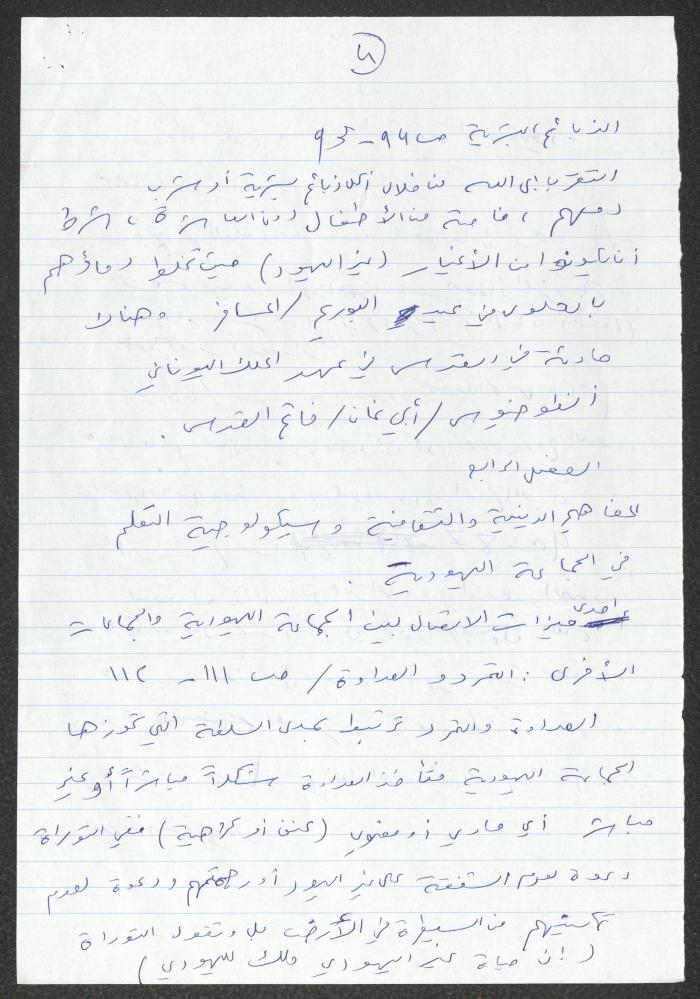 ٤
الذبائح البشرية ص ٩٤ - ٩٥
التقرب إلى الله من خلال أكل ذبائح بشرية أو شرب
دمهم ، خاصة من الأطفال دون العاشرة ، شرط
أن يكونوا من الأغيار (غير اليهود) حيث تخلط دماؤهم
بالحلوى في عيد البوريم / المساخر . وهناك
حادثة في القدس في عهد الملك اليوناني
أنطوخيوس / أبي فان / فاتح القدس .
الفصل الرابع
المفاهيم الدينية والثقافية وسيكولوجية التعلم
في الجماعة اليهودية .
احدى ميزات الاتصال بين الجماعة اليهودية والجماعات
الأخرى : التمرد و العداوة / ص ١١١ - ١١٢
العداوة والتمرد ترتبط بمدى السلطة التي تحوزها
الجماعة اليهودية فتأخذ العداوة شكلاً مباشراً أو غير
مباشر أي مادي أو معنوي (عنف أو كراهية) ففي التوراة
دعوة لعدم الشفقة على غير اليهود أو رحمتهم ودعوة لعدم
تمكينهم من السيطرة في الأرض بل وتقول التوراة
(إن حياة غير اليهودي ملك لليهودي)